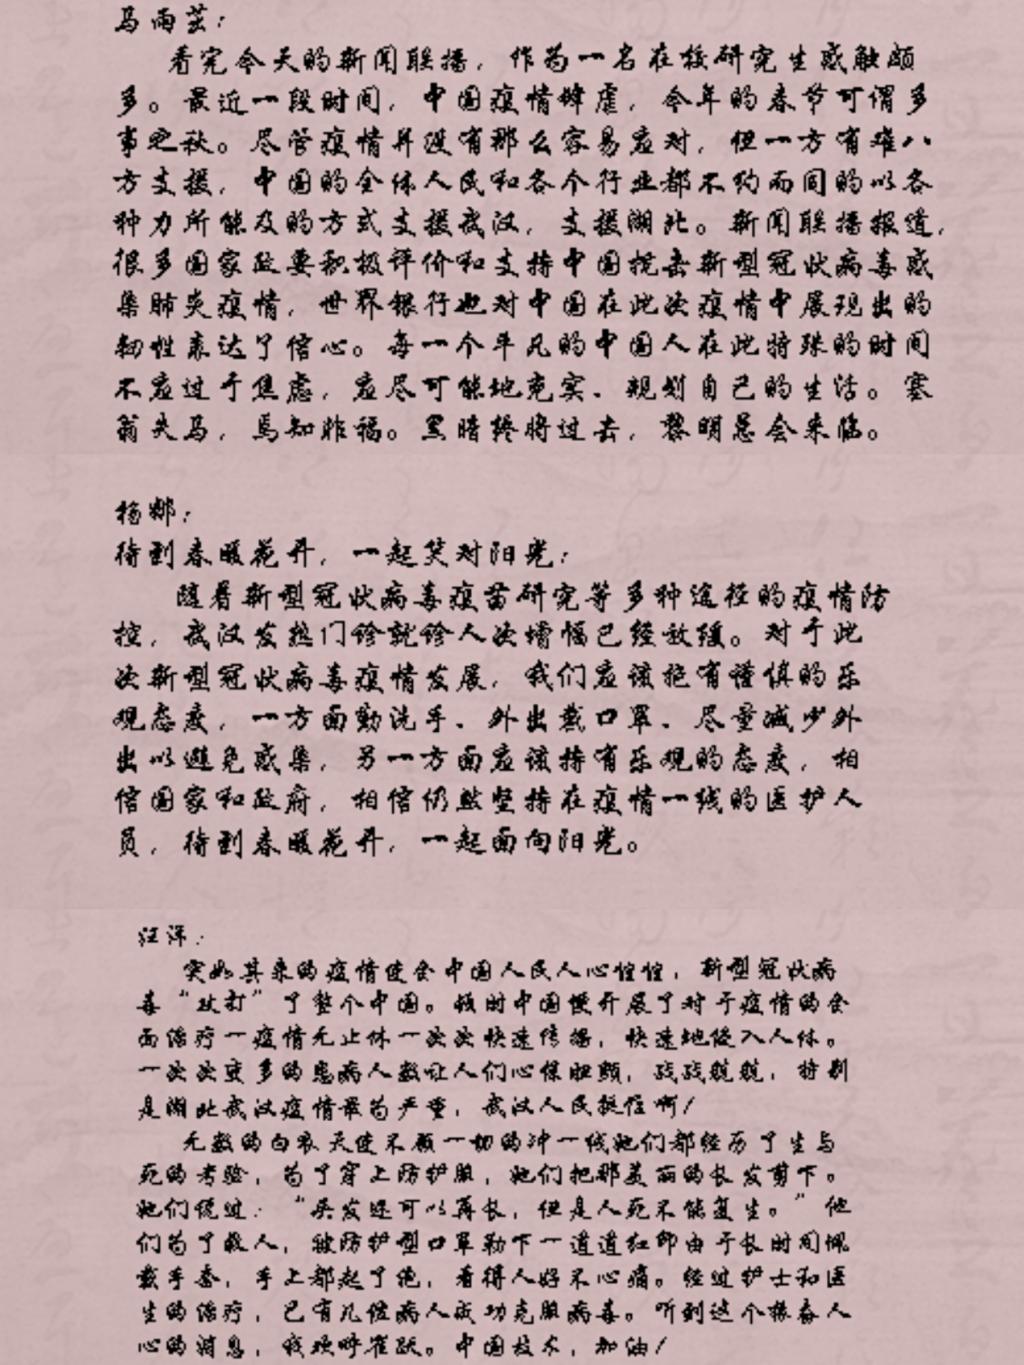 马雨芸：
看完今天的新闻联播，作为一名在校研究生感触颇
多。最近一段时间，中国疫情肆虐，今年的春节可谓多
事之秋。尽管疫情并没有那么容易应对，但一方有难八
方支援，中国的全体人民和各个行业都不约而同的以各
种力所能及的方式支援武汉，支援湖北。新闻联播报道，
很多国家政要积极评价和支持中国抗击新型冠状病毒感
染肺炎疫情，世界银行也对中国在此次疫情中展现出的
韧性表达了信心。每一个平凡的中国人在此特殊的时间
不应过于焦虑，应尽可能地充实、规划自己的生活。塞
翁失马，焉知非福。黑暗终将过去，黎明总会来临。
杨娜：
待到春暖花开，一起笑对阳光：
随着新型冠状病毒疫苗研究等多种途径的疫情防
控，武汉发热门诊就诊人次增幅已经放缓。对于此
次新型冠状病毒疫情发展，我们应该抱有谨慎的乐
观态度，一方面勤洗手、外出戴口罩、尽量减少外
出以避免感染，另一方面应该持有乐观的态度，相
信国家和政府，相信仍然坚持在疫情一线的医护人
员，待到春暖花开，一起面向阳光。
汪洋：
突如其来的疫情使会中国人民人心惶惶，新型冠状病
毒“攻打”了整个中国。顿时中国便开展了对于疫情的全
面治疗一疫情无止休一次次快速传播，快速地侵入人体。
一次次更多的患病人数让人们心惊胆颤，战战兢兢，特别
是湖北武汉疫情最为严重，武汉人民挺住啊！
无数的白衣天使不顾一切的冲一线她们都经历了生与
死的考验，为了穿上防护服，她们把那美丽的长发剪下。
她们说过：“头发还可以再长，但是人死不能复生。”他
们为了救人，被防护型口罩勒下一道道红印由于长时间佩
戴手套，手上都起了泡，看得人好不心痛。经过护士和医
生的治疗，已有几位病人成功克服病毒。听到这个振奋人
心的消息，我欢呼雀跃。中国技术，加油！